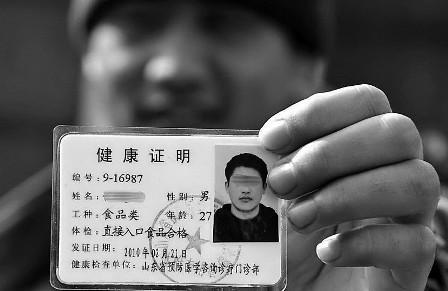 健康证明
编号：9-16987
姓名： 性别：男
工种：食品类 年龄：27
体检：直接入口食品合格
发证日期：2010年03月21日
健康检查单位：山东省预防医学咨询诊疗门诊部